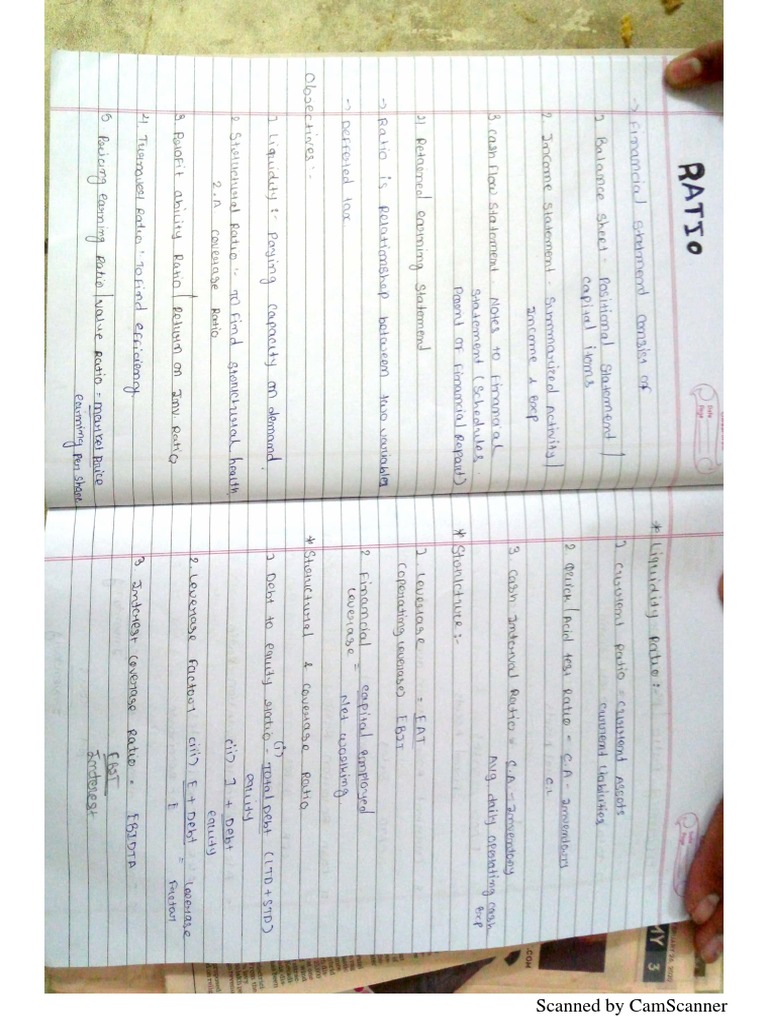 RATIO
→ Financial Statement consist of
1 Balance Sheet - Positional Statement /
Capital items
2. Income Statement - Summarized Activity /
Income & Exp
3 Cash flow Statement - Notes to Financial
Statement (Schedules.
Parent of Financial Report)
4) Retained earning Statement
→ Ratio is Relationshep between two variables
→ Deffered tax
Obsectives :-
1 Liquidity :- Paying capacity on demand.
2 Stonictural Ratio :- To Find stonictural health
2.A coverage Ratio
3 Profit ability Ratio / Return on Inv. Ratio
4) Turnover Ratio : To Find efficiency
5 Pricing earning Ratio / Value Ratio = market Price
earning per share
* Liquidity Ratio :-
1 Current Ratio = Current Assets
Current liabilities
2 Quick / Acid test Ratio = C.A - Inventory
C.L
3 Cash Interval Ratio = C.A - Inventory
Avg. daily operating cash
Exp
* Stonicture :-
1. Leverage = EAT
(operating leverage) EBIT
2 Financial = capital employed
leverage Net working
* Stonictural & coverage Ratio
1 Debt to equity ratio = (i) Total Debt (LTD + STD)
equity
(ii) 1 + Debt
equity
2. Leverage Factor (iii) E + Debt = leverage
E Factor
3 Interest coverage Ratio = EBIDTA
EBIT
Interest
Date
Page
MY 3
.COM
Scanned by CamScanner